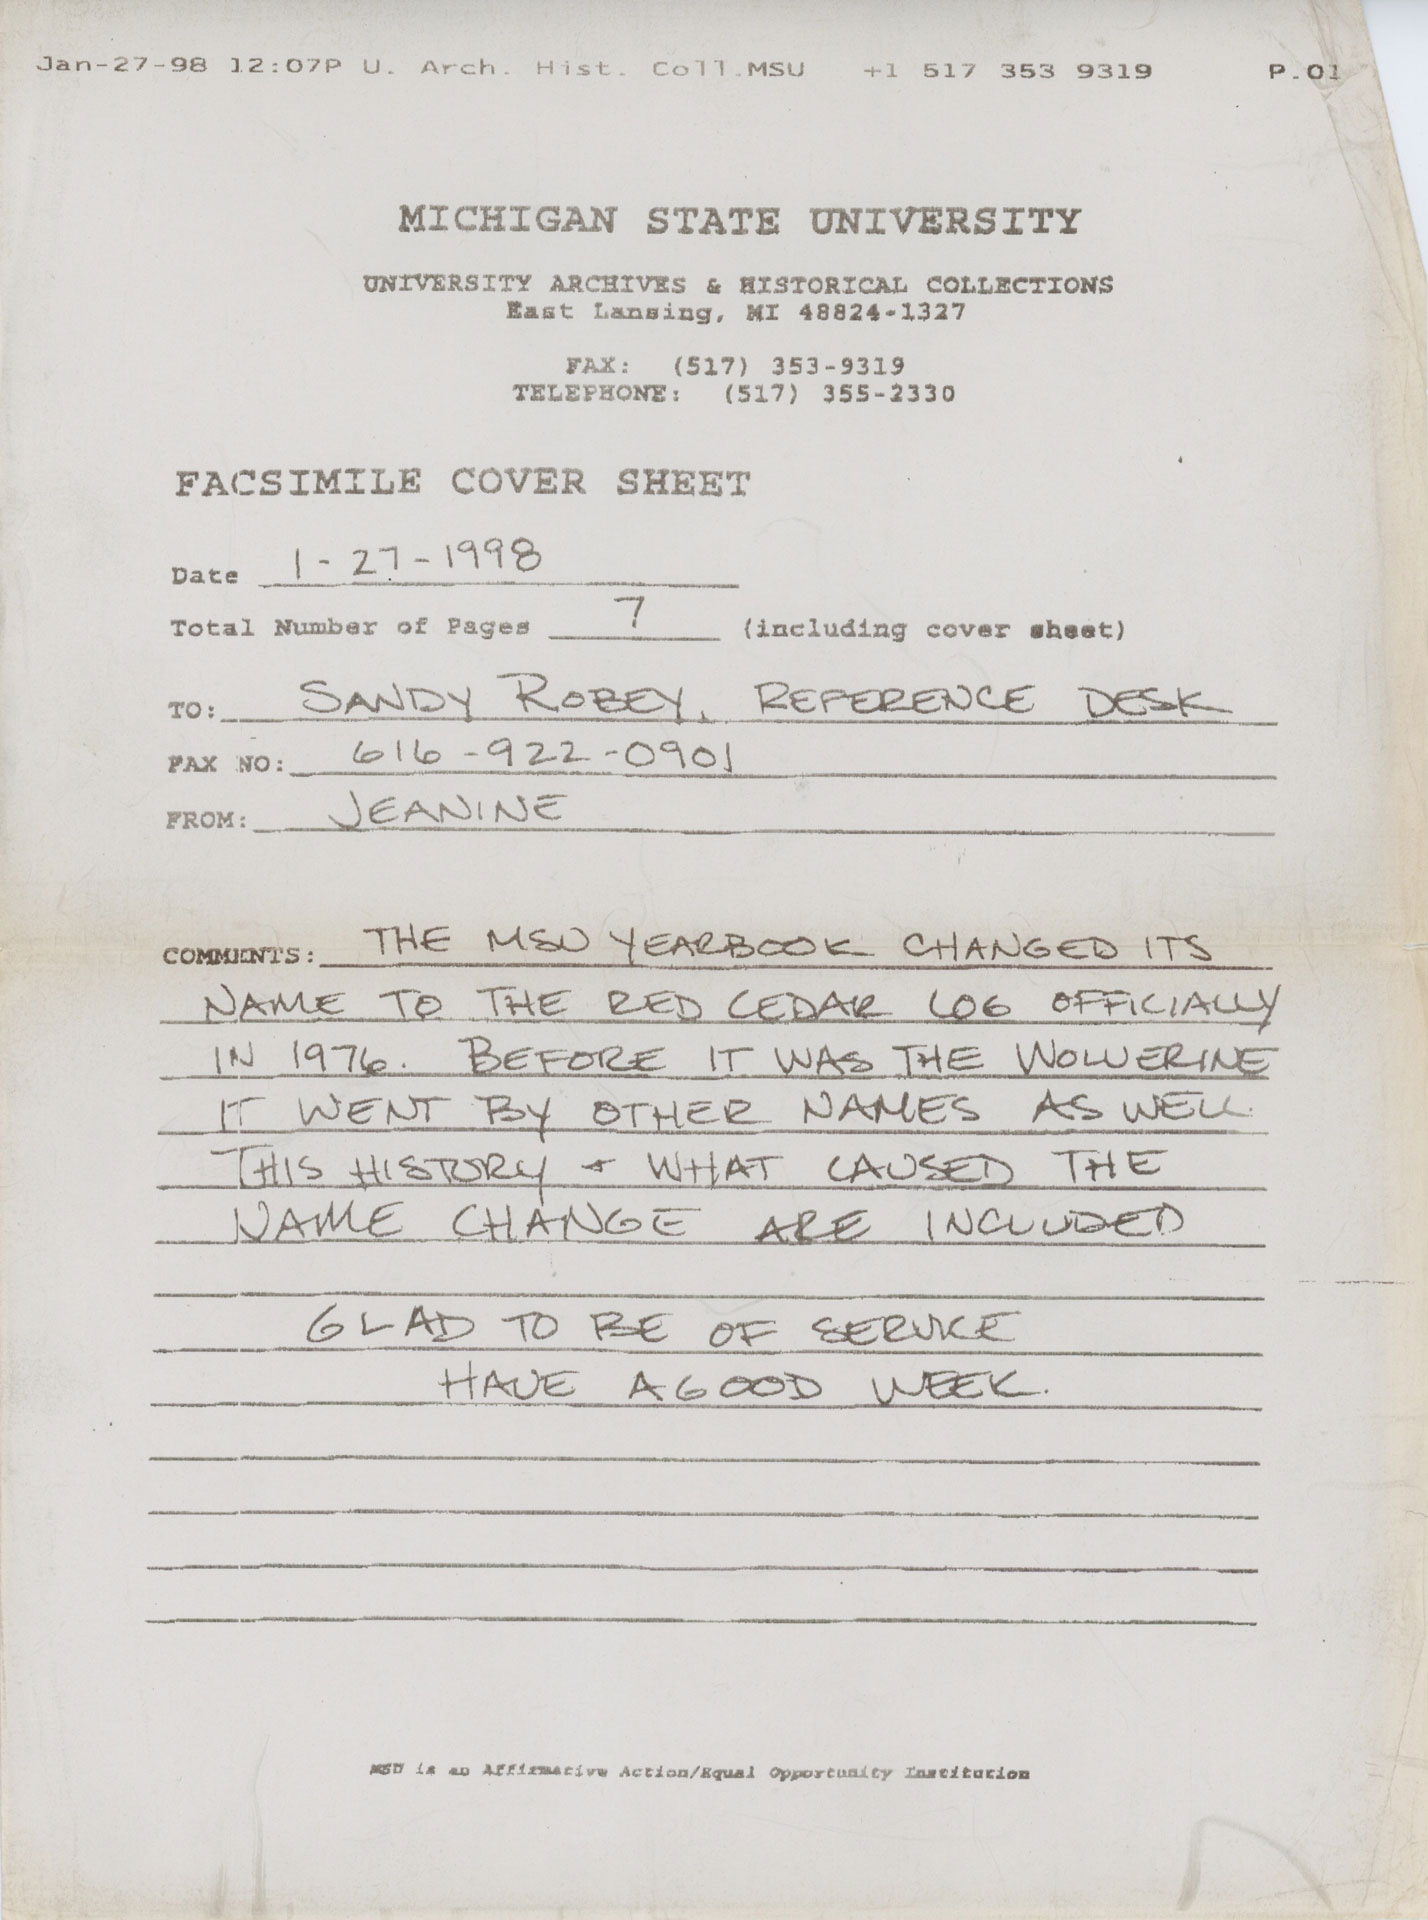 Jan-27-98 12:07P U. Arch. Hist. Coll.MSU +1 517 353 9319 P.01
MICHIGAN STATE UNIVERSITY
UNIVERSITY ARCHIVES & HISTORICAL COLLECTIONS
East Lansing, MI 48824-1327
FAX: (517) 353-9319
TELEPHONE: (517) 355-2330
FACSIMILE COVER SHEET
Date 1-27-1998
Total Number of Pages 7 (including cover sheet)
TO: SANDY ROBEY, REFERENCE DESK
FAX NO: 616-922-0901
FROM: JEANINE
COMMENTS: THE MSU YEARBOOK CHANGED ITS
NAME TO THE RED CEDAR LOG OFFICIALLY
IN 1976. BEFORE IT WAS THE WOLVERINE
IT WENT BY OTHER NAMES AS WELL.
THIS HISTORY + WHAT CAUSED THE
NAME CHANGE ARE INCLUDED
GLAD TO BE OF SERVICE
HAVE A GOOD WEEK.
MSU is an Affirmative Action/Equal Opportunity Institution